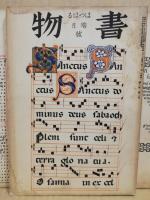 書物
はつはる
端月號
Sanctus San
ctus Sanctus do
minus deus sabaoth
Pleni sunt celi et
terra gloria tua.
Osanna in excel